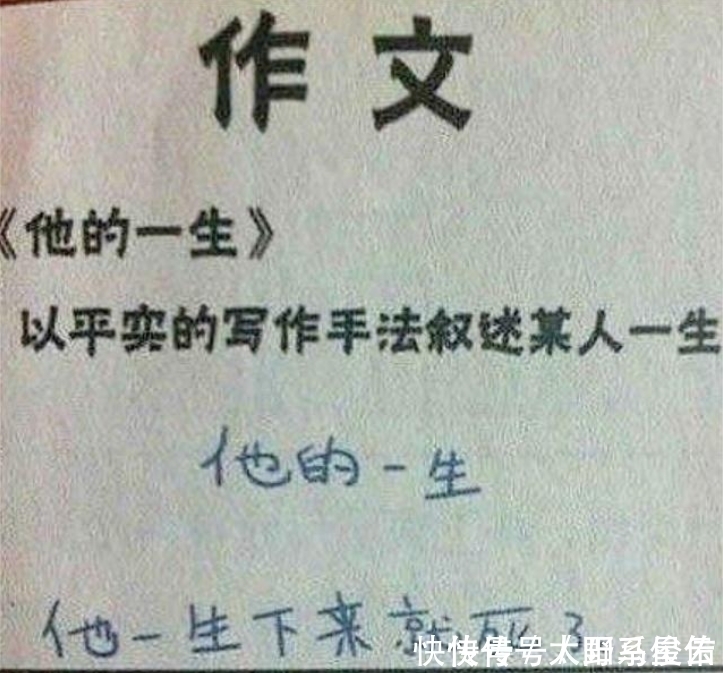 作文
《他的一生》
以平实的写作手法叙述某人一生
他的一生
他一生下来就死了
快传号